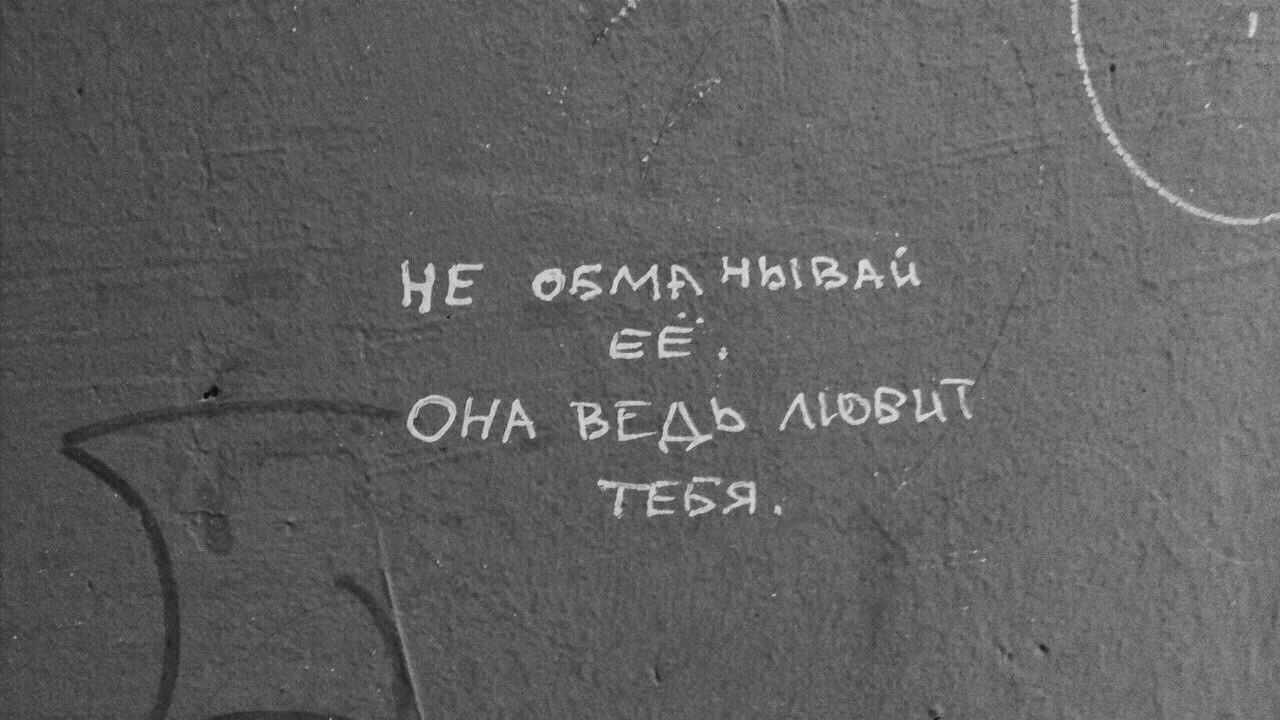 НЕ ОБМАНЫВАЙ
ЕЁ.
ОНА ВЕДЬ ЛЮБИТ
ТЕБЯ.